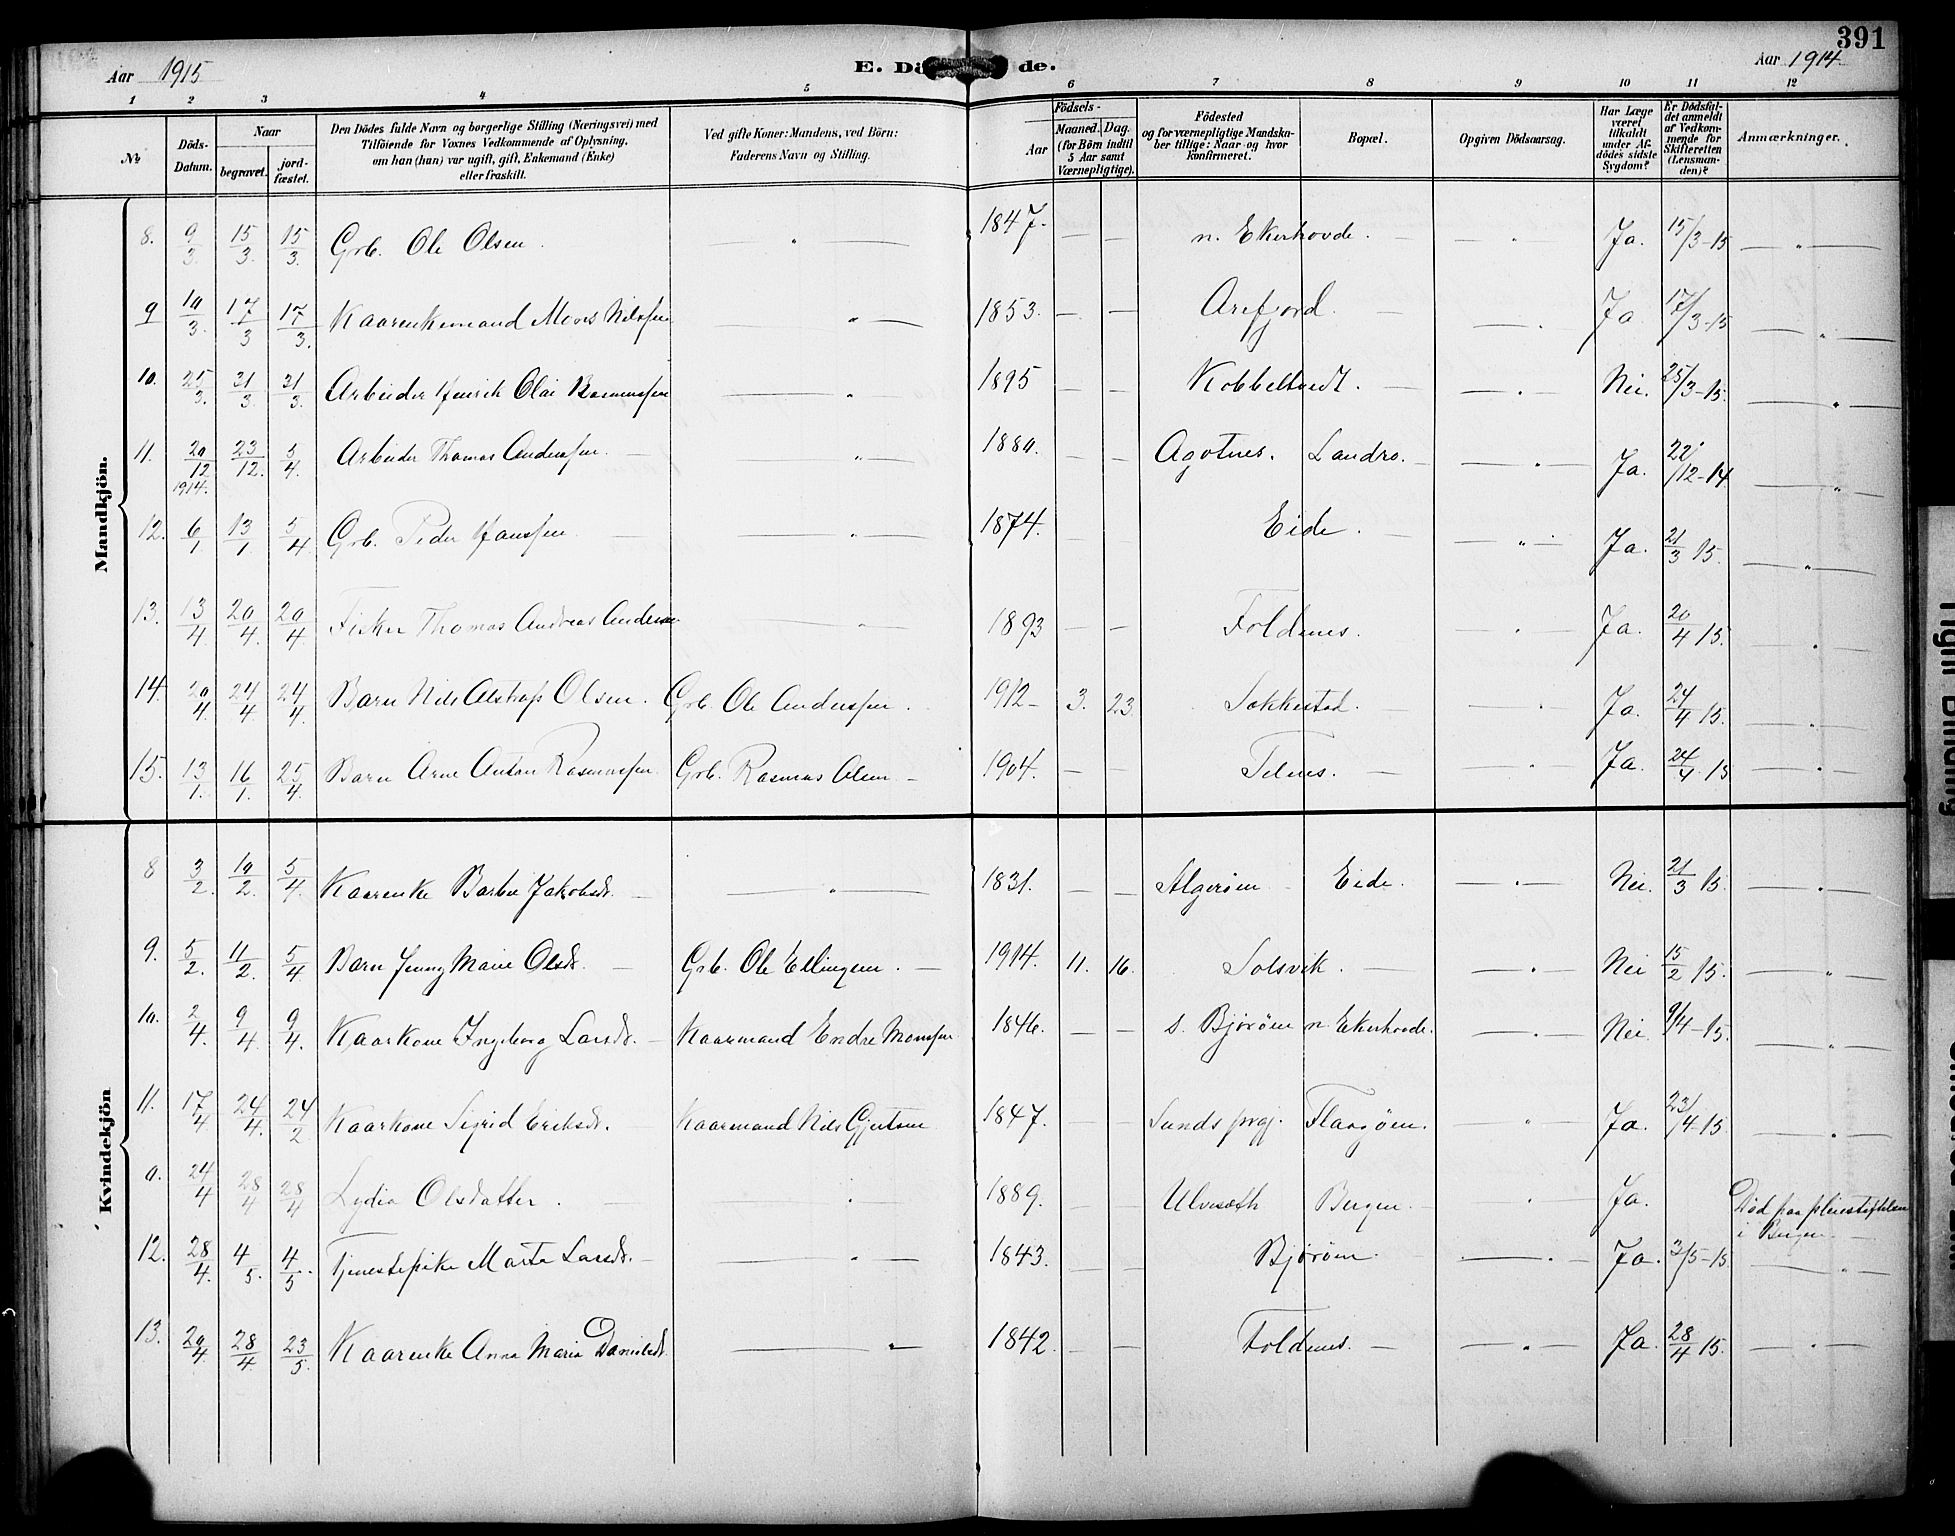 391
Aar 1915
E. Dö de.
Aar 1914.
1 2 3 4 5 6 7 8 9 10 11 12
No
Döds-Datum.
Naar
begravet.
jord-fæstet.
Den Dödes fulde Navn og borgerlige Stilling (Næringsvei) med
Tilföiende for Voxnes Vedkommende af Oplysning,
om han (hun) var ugift, gift, Enkemand (Enke)
eller fraskilt.
Ved gifte Koner: Mandens, ved Börn:
Faderens Navn og Stilling.
Födsels-
Aar
Maaned. Dag.
(for Börn indtil
5 Aar samt
Værnepligtige).
Födested
og for værnepligtige Mandska-
ber tillige: Naar og hvor
konfirmeret.
Bopæl.
Opgiven Dödsaarsag.
Har Læge
været
tilkaldt
under Af-
dödes sidste
Sygdom?
Er Dödsfal-
det anmeldt
af Vedkom-
mende for
Skifteretten
(Lensman-
den)?
Anmærkninger.
Mandkjön.
8. 9/3 15/3 15/3 Grb. Ole Olsen. " 1847. — — n. Ekerhovde. — " — Ja. 15/3-15 — " —
9 10/3. 17/3 17/3. Kaarenkemand Mons Nilssen — " — 1853. — — Arefjord. — — " — Ja 17/3-15 — " —
10. 25/3. 31/3. 31/3. Arbeider Henrik Olai Rasmussen — " 1895 — — Kobbeltvedt. — — " — Nei. 25/3-15. — " —
11. 20/12 1914. 23/12. 5/4. Arbeider Thomas Anderssen. — " — 1880. — — Agotnes. Landro. — " — Ja. 22/12-14 — " —
12. 6/1 13/1 5/4. Grb. Peder Hanssen — " — 1874. — Eide. — — " — Ja. 21/3 15. — " —
13. 13/4 20/4. 20/4 Fisker Thomas Andreas Andersen — " — 1893 — — Foldnes. " — Ja. 20/4 15. — " —
14. 20/4 24/4 24/4. Barn Nils Alstrup Olsen. Grb. Ole Anderssen. 1912- 3. 23 Sekkestad. — — " Ja. 24/4 15. — " —
15. 13/1. 16/1. 25/4. Barn Arne Anton Rasmussen Grb. Rasmus Olsen — 1904. — — Telnes. — — " — Ja. 24/4 15 — " —
Kvindekjön
8 3/2. 10/2. 5/4. Kaarenke Barbro Jakobsdt. — " — 1831. — — Algerøen Eide. — " — Nei. 21/3 15. — " —
9. 5/2. 11/2. 5/4 Barn Jenny Marie Olsdt. — Grb. Ole Ellingsen. — 1914. 11. 16. Solsvik. — — " — Nei 15/2 15. — " —
10. 2/4. 9/4. 9/4. Kaarkone Ingeborg Larsdt. — Kaarmand Endre Monssen 1846. — — s. Bjørøen n. Ekerhovde. — " — Nei. 9/4-15. — " —
11. 17/4 24/4. 24/2 Kaarkone Sigrid Eriksdt. — Kaarmand Nils Gjertsen 1847. — — Sunds prgj. Flaagøen. " — Ja. 23/4-15. — " —
0. 24/4 28/4 28/4 Lydia Olsdatter. — " 1889. — — Ulvesæth Bergen. — " — Ja. Död paa pleiestiftelsen
i Bergen. —
12. 28/4. 4/5. 4/5. Tjenestepike Marta Larsdt. — — " — 1843. — — Bjørøen. — " — Ja. 3/5-15 — " —
13. 20/4 28/4 23/5. Kaarenke Anna Maria Danielsdt. — " — 1842. — — Foldnes. — — " — Ja. 28/4 15. — " —